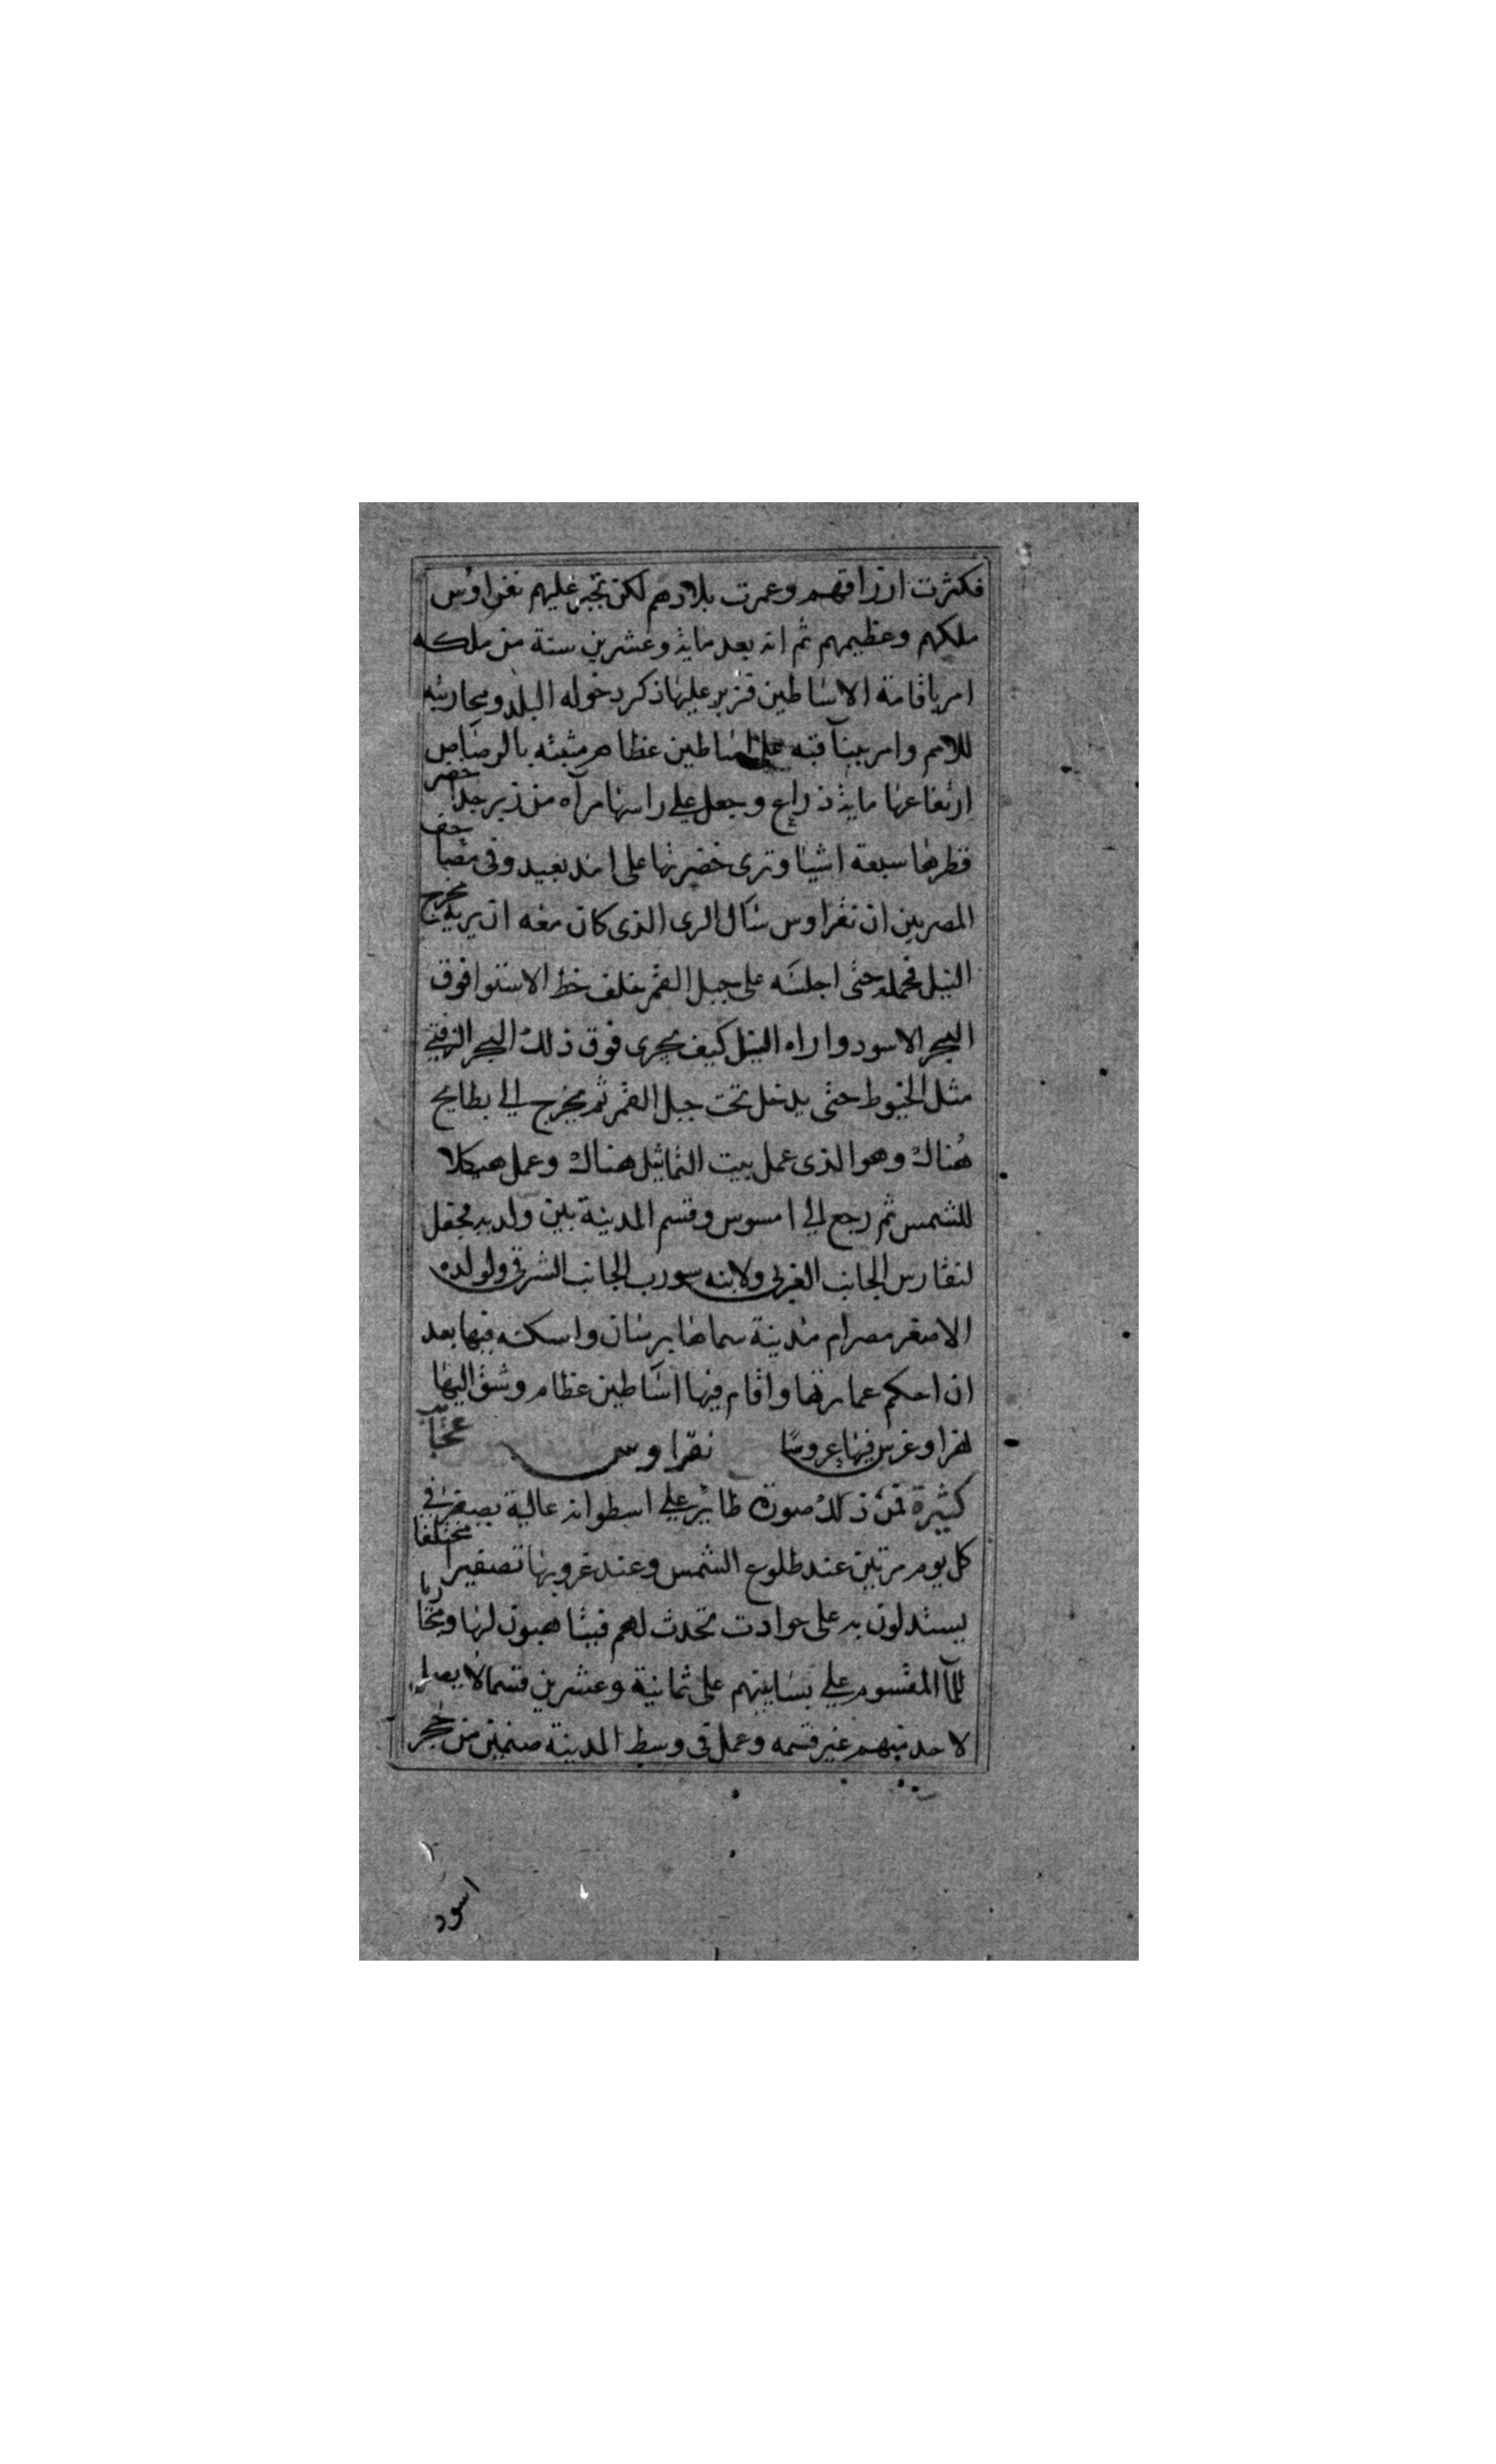 فكثرت ارزاقهم وعمرت بلادهم لكن تجبر عليهم نقراوس
ملكهم وعظيمهم ثم انه بعد ماية وعشرين سنة من ملكه
امر باقامة الاساطين فزبر عليها ذكر دخوله البلد ومحاربته
للامم وامر ببنآ قبة على اساطين عظام مثبته بالرصاص
ارتفاعها ماية ذراع وجعل على راسها مرآه من زبرجد اخضر
قطرها سبعة اشبا وترى خضرتها على امد بعيد وفى مصاحف
المصريين ان نقراوس سال الرى الذى كان معه ان يريه مخرج
النيل فحمله حتى اجلسه على جبل القمر خلف خط الاستوا فوق
البحر الاسود واراه النيل كيف يجرى فوق ذلك البحر الزفتى
مثل الخيوط حتى يدخل تحت جبل القمر ثم يخرج الى بطايح
هُناك وهو الذى عمل بيت التماثيل هناك وعمل هيكلا
للشمس ثم رجع الى امسوس وقسم المدينة بين ولديه فجعل
لنقارس الجانب الغربى ولابنه سورب الجانب الشرقى ولولده
الاصغر مصرام مدينة سماها برسان واسكنه فيها بعد
ان احكم عمارتها واقام فيها اساطين عظام وشق اليها
نهرا وغرس فيها غروسًا نقراوس عجآيب
كثيرة فمن ذلك صورة طاير على اسطوانه عالية يصفر فى
كل يوم مرتين عند طلوع الشمس وعند غروبها تصفيرا مختلفا
يستدلون به على حوادت تحدث لهم فيتاهبون لها ومجاريا
للمآ المقسوم على بساتينهم على ثمانية وعشرين قسما لا يصل
لاحد منهم غير قسمه وعمل فى وسط المدينة صنمين من حجر
اسود